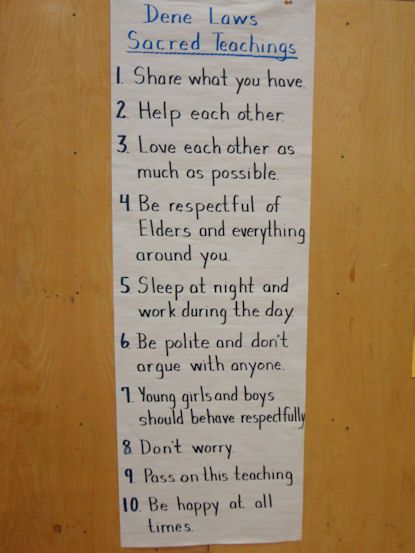 Dene Laws
Sacred Teachings
1. Share what you have.
2. Help each other.
3. Love each other as
much as possible.
4. Be respectful of
Elders and everything
around you.
5. Sleep at night and
work during the day.
6. Be polite and don't
argue with anyone.
7. Young girls and boys
should behave respectfully
8. Don't worry.
9. Pass on this teaching
10. Be happy at all
times.